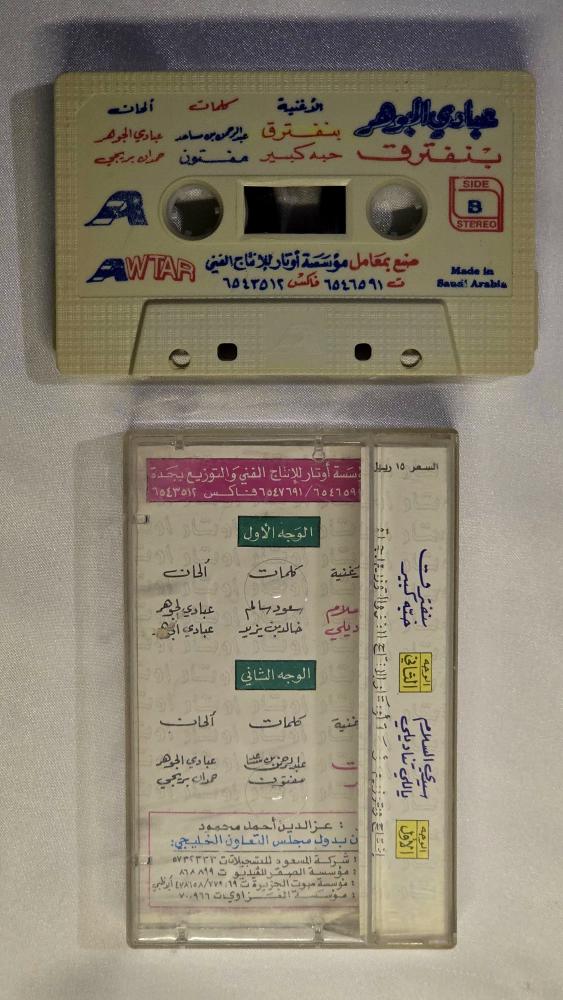 عبادي الجوهر
بنفترق
الأغنية كلمات ألحان
بنفترق عبدالرحمن بن ساعد عبادي الجوهر
حبه كبير مفتون حمدان بريجي
SIDE
B
STEREO
A
AWTAR
صنع بمعامل مؤسسة أوتار للإنتاج الفني
ت ٦٥٤٦٥٩١ فاكس ٦٥٤٣٥١٢
Made in
Saudi Arabia
السعر ١٥ ريال
مؤسسة أوتار للإنتاج الفني والتوزيع بجدة
٦٥٤٦٥٩١/٦٥٤٧٦٩١ فاكس ٦٥٤٣٥١٢
الوجه الأول
كلمات ألحان
سعود سالم عبادي الجوهر
خالد بن يزيد عبادي
الوجه الثاني
كلمات ألحان
عبدالرحمن بن ساعد عبادي الجوهر
مفتون حمدان بريجي
: عزالدين أحمد محمود
بدول مجلس التعاون الخليجي:
: شركة المسعود للتسجيلات ٥٧٣٢٣٣٣
: مؤسسة الصقر للفيديو ت ٨٦٨٨٩٩
: مؤسسة صوت الجزيرة ت
: مؤسسة ت ٧٠٠٩٦٦
الوجه الأول
سيدي السلام
ياللي تناديلي
الوجه الثاني
بنفترق
حبه كبير